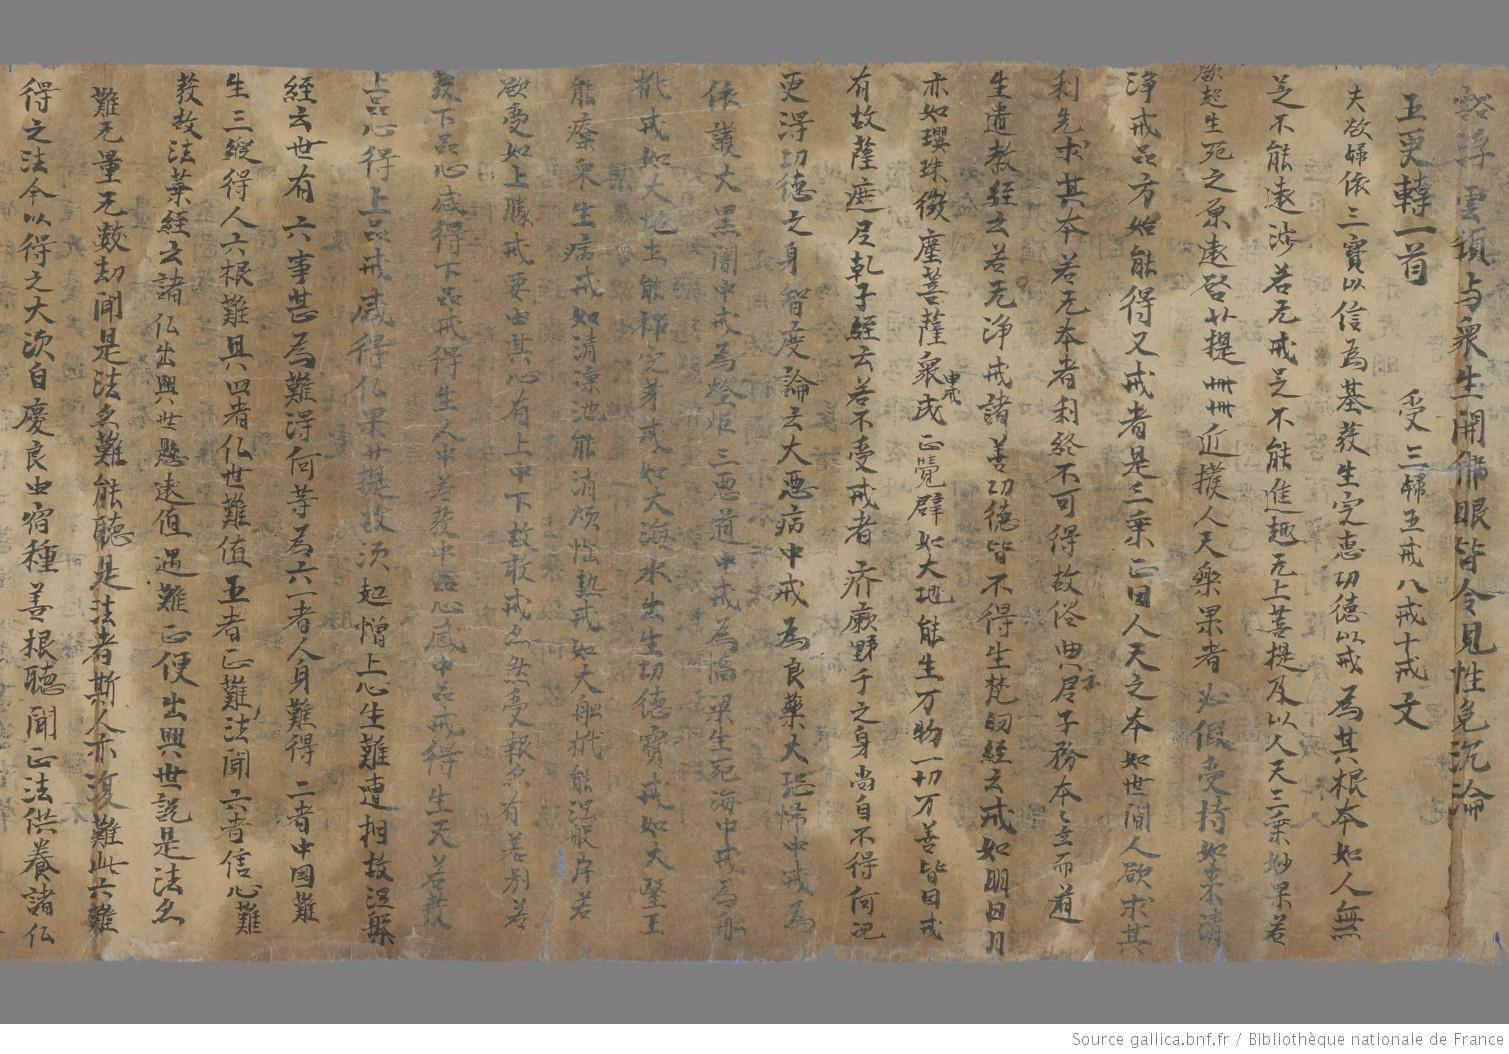 豁浮雲頓与衆生開佛眼皆令見性免沉淪
五更轉一首 受三歸五戒八戒十戒文
夫欲歸依三寶以信為基發生定惠功德以戒為其根本如人無
足不能遠涉若无戒足不能進趣无上菩提及以人天三乘妙果若
欲起生死之原遠啓卄提卌卌近撲人天樂果者必假受持如来清
浄戒品方始能得又戒者是三乘正因人天之本如世間人欲求其
利先求其本若无本者利終不可得故俗典君子務本本立而道
生遺教經云若无浄戒諸善功德皆不得生梵網經云戒如明日月
亦如瓔珠微塵菩薩衆由戒成正覺辟如大地能生万物一切万善皆因戒
有故薩遮尼乾子經云若不受戒者疥癩野干之身尚自不得何况
更得功德之身智度論云大悪病中戒為良藥大恐怖中戒為
依護大黑闇中戒為燈炬三悪道中戒為橋梁生死海中戒為船
栰戒如大地生能作定芽戒如大海水出生功德寶戒如大醫王
能療衆生病戒如清凉池能消煩惱熱戒如大船栰能涅槃岸若
欲受如上勝戒要由其心有上中下故取戒亦然受報亦有善别若
發下品心感得下品戒得生人中若發中品心感中品戒得生天若發
上品心得上品戒感得仏果卄提故須起憎上心生難遭相故涅槃
經云世有六事甚為難得何等為六一者人身難得二者中国難
生三縱得人六根難具四者仏世難值五者正難法聞六者信心難
發故法華經云諸仏出興世懸遠值遇難正便出興世說是法亦
難无量无數劫聞是法亦難能聽是法者斯人亦復難此六難
得之法今以得之大須自慶良由宿種善根聽聞正法供養諸仏
Source gallica.bnf.fr / Bibliothèque nationale de France